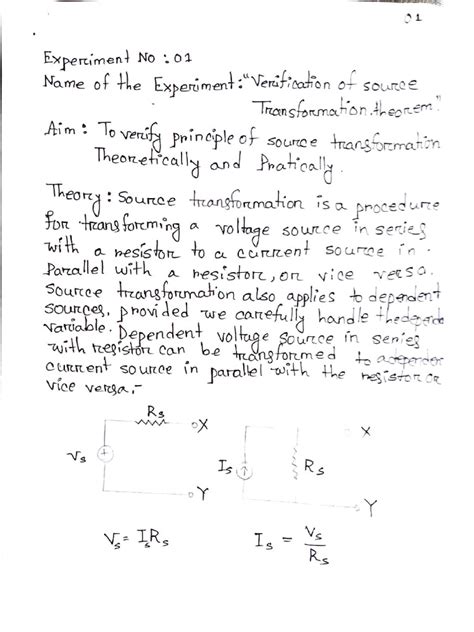 01
Experiment No : 01
Name of the Experiment: "Verification of source
Transformation theorem."
Aim : To verify principle of source transformation
Theoretically and Pratically.
Theory : Source transformation is a procedure
for transforming a voltage source in series
with a resistor to a current source in
Parallel with a resistor, or vice versa.
Source transformation also applies to dependent
sources, provided we carefully handle the
variable. Dependent voltage source in series
with resistor can be transformed to a
current source in parallel with the resistor or
vice versa,-
Rs
X
Vs
+
Y
X
Is
Rs
Y
Vs = IsRs
Is = Vs
Rs